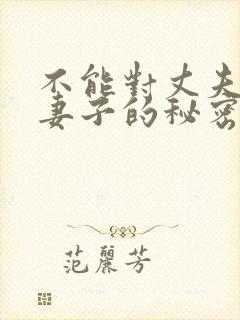 不能對丈夫
妻子的秘密
范麗芳